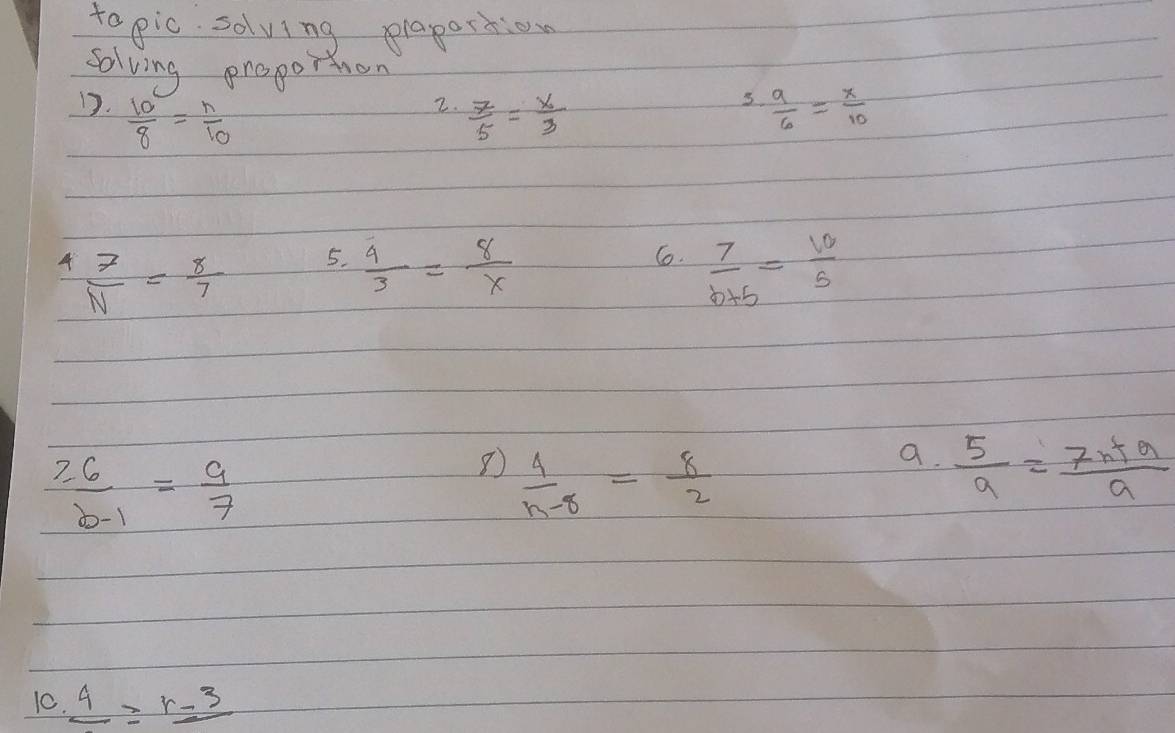 topic. solving praportion
Solving proportion
1). 10/8 = n/10 2. 7/5 = x/3 3. 9/6 = x/10
4 7/N = 8/7 5. 4/3 = 8/x 6. 7/b+5 = 10/5
7. 6/b-1 = 9/7 8) 4/n-8 = 8/2 9. 5/9 = 7n+9/9
10. 4 = r-3